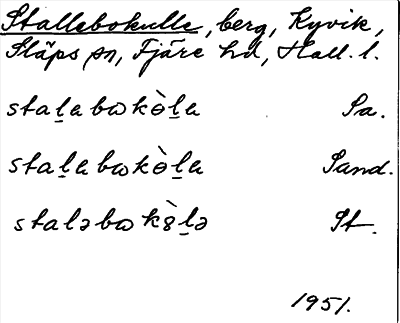 Stallebokulle, berg, Kyvik,
Släps sn, Fjäre hd, Hall. l.
staḻa bωkɵ̀ḻa Sa.
staḻa bωkɵ̀ḻa Sand.
staləbωk8̀ḻə St.
1951.